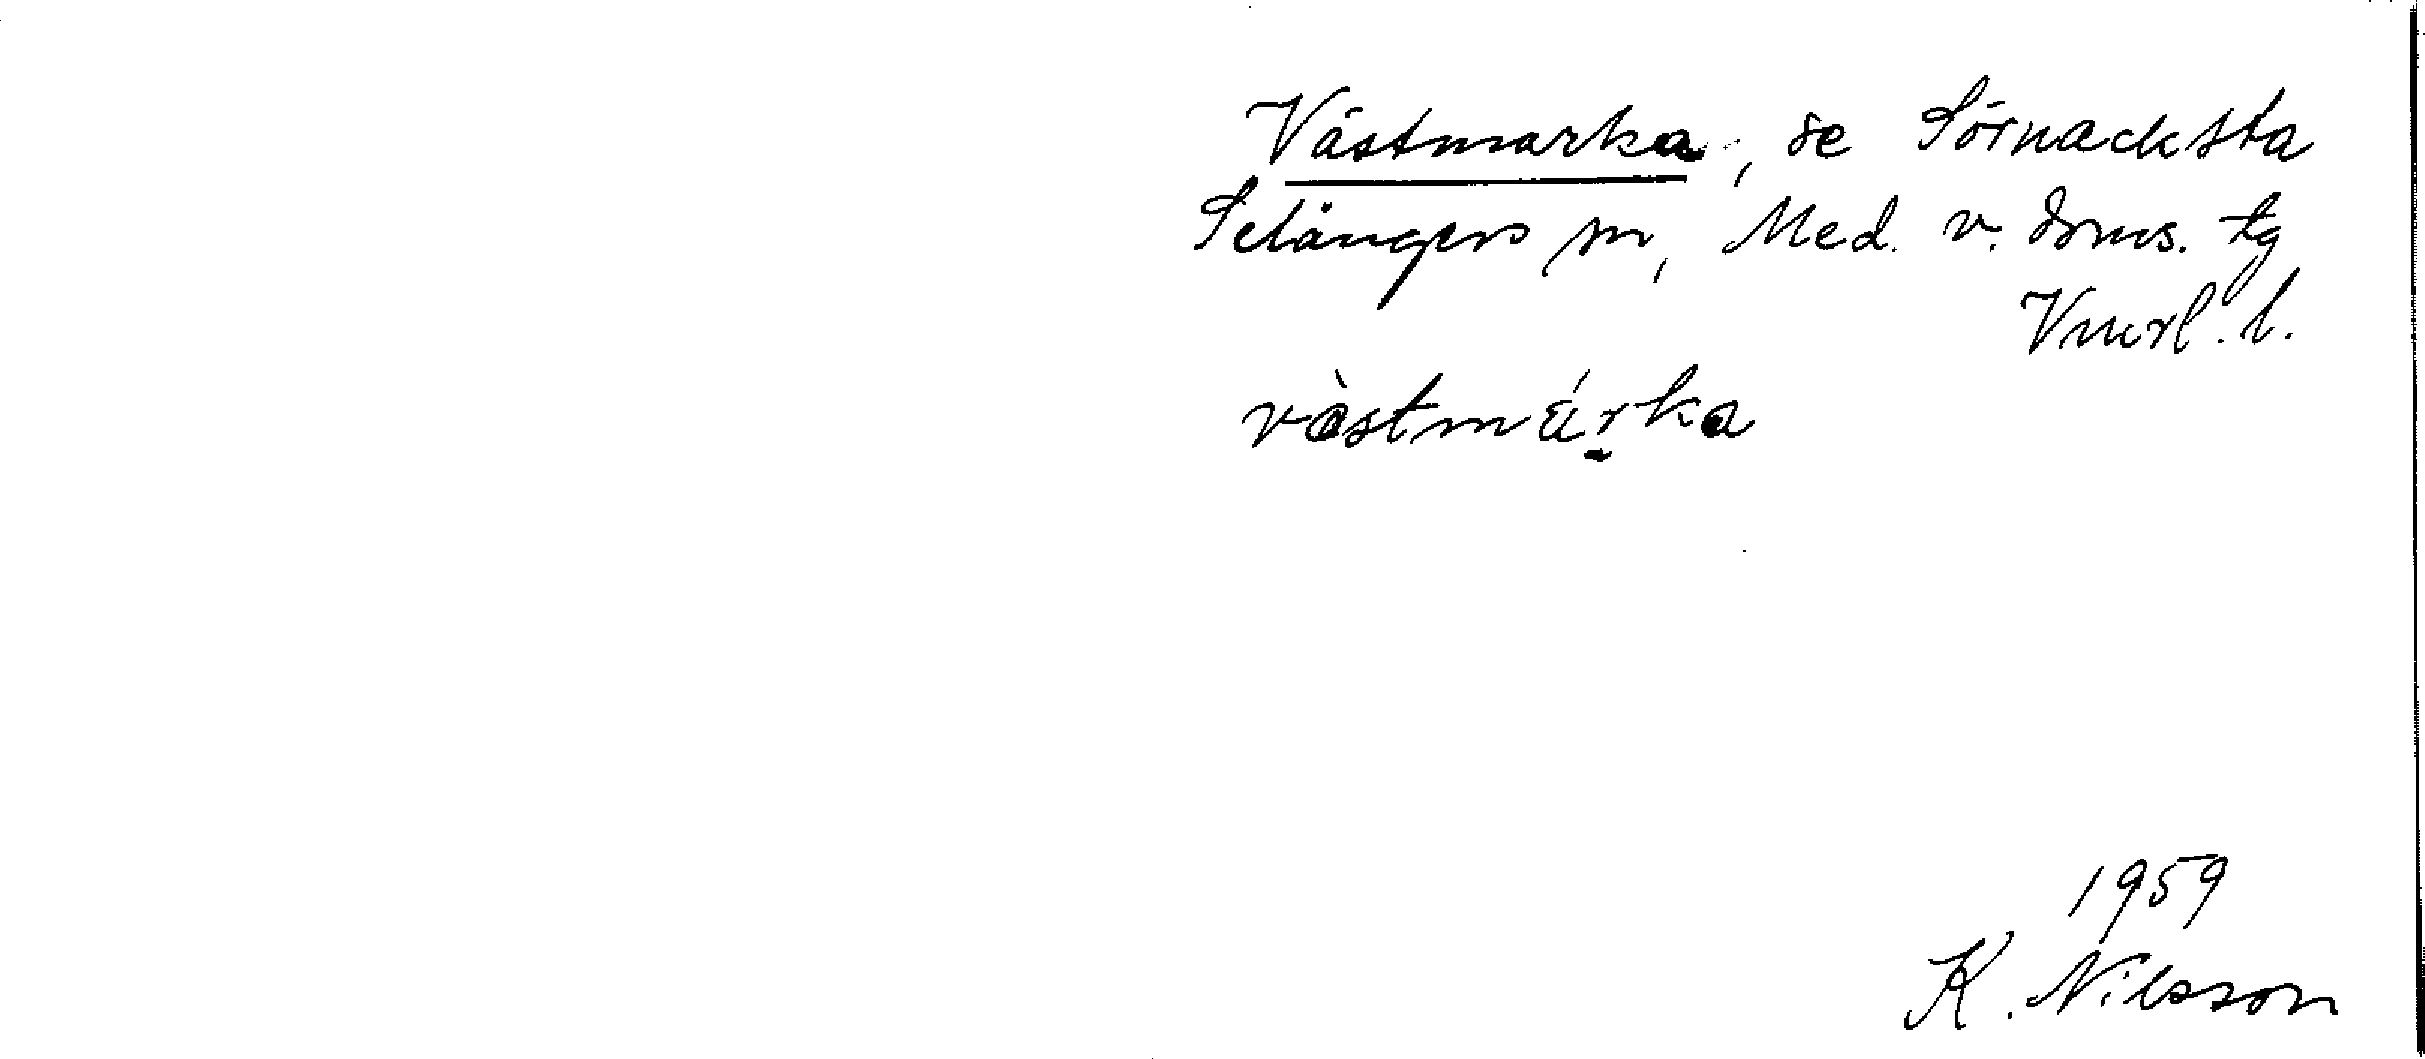 Västmarka, se Sörnacksta
Selångers sn, Med. v. doms. tg
Vmrl. l.
vàstmárka
1959
K. Nilsson